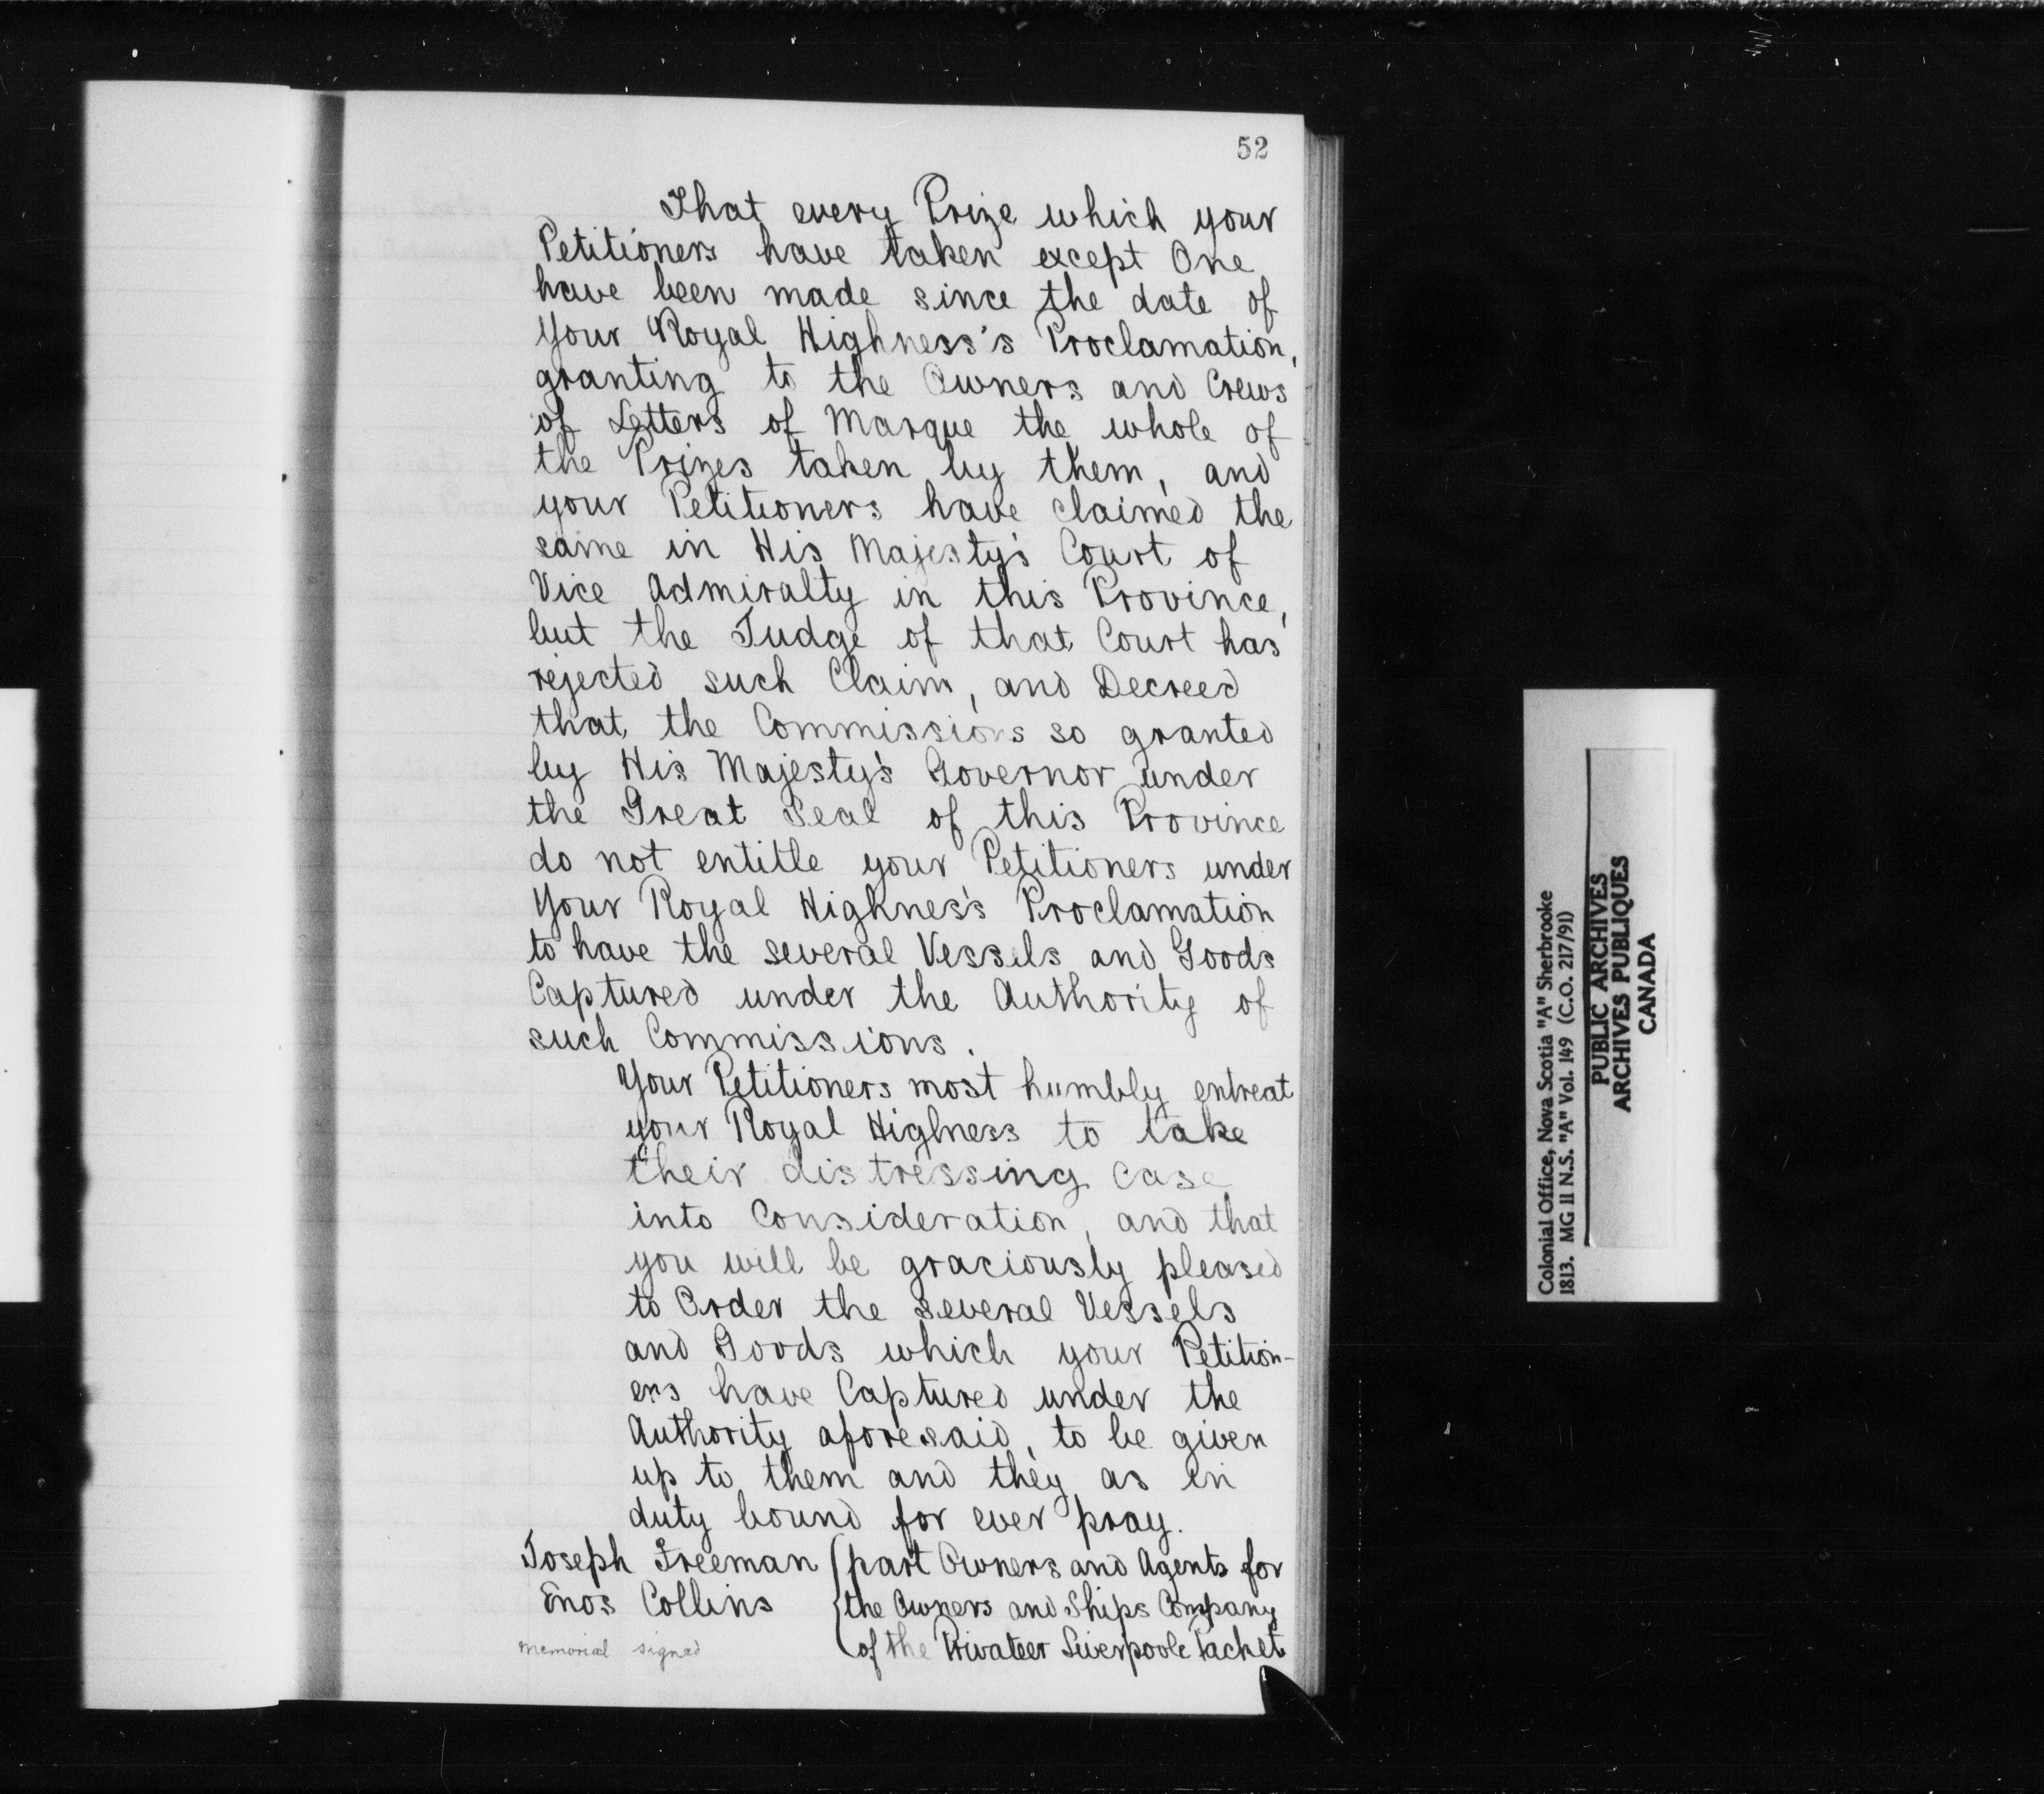 52
That every Prize which your
Petitioners have taken except One
have been made since the date of
Your Royal Highness's Proclamation,
granting to the Owners and Crews
of Letters of Marque the whole of
the Prizes taken by them, and
your Petitioners have claimed the
same in His Majesty's Court of
Vice Admiralty in this Province,
but the Judge of that Court has
rejected such Claim, and Decreed
that the Commissions so granted
by His Majesty's Governor under
the Great Seal of this Province
do not entitle your Petitioners under
Your Royal Highness Proclamation
to have the several Vessels and Goods
Captured under the Authority of
such Commissions.
Your Petitioners most humbly entreat
your Royal Highness to take
their distressing case
into Consideration, and that
you will be graciously pleased
to Order the several Vessels
and Goods which your Petition-
ers have Captured under the
Authority aforesaid, to be given
up to them and they as in
duty bound for ever pray.
Joseph Freeman (part Owners and Agents for
Enos Collins the Owners and Ships Company
Memorial signed of the Privateer Liverpoole Packet
Colonial Office, Nova Scotia "A" Sherbrooke
1813. MG 11 N.S. "A" Vol. 149 (C.O. 217/91)
PUBLIC ARCHIVES
ARCHIVES PUBLIQUES
CANADA